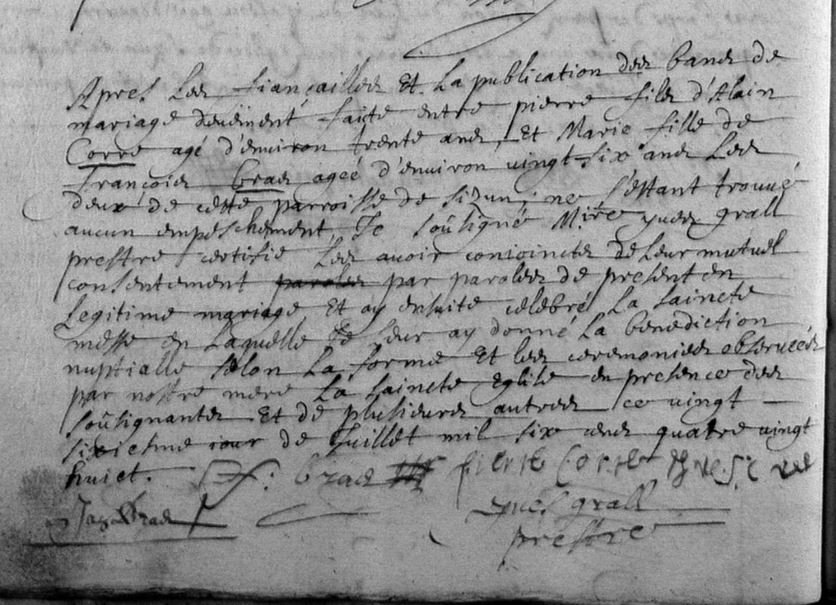 Apres Les fiançailles Et La publication des bans de
mariage deuëment faite entre pierre fils d'Alain
Corre agé d'enuiron trente ans, Et Marie fille de
francois Bras ageé d'enuiron vingt six ans Les
deux de cette parroisse de sizun, ne s'estant trouué
aucun empeschement, Je soûsigné M.ire yues grall
prestre certifie Les auoir conjoinctes de Leur mutuel
consentement paroles par paroles de present en
Legitime mariage, Et ay ensuite celebré La saincte
messe en Laquelle Je Leur ay donné La benediction
nuptialle selon La forme Et les ceremonies obseruées
par nostre mere La saincte Eglise en presence des
soûsignantes Et de plusieurs autres ce vingt
sixiesme jour de Juillet mil six cens quatre vingt
huict. f: bras pierre Corre
Jaq bras yues grall
prestre